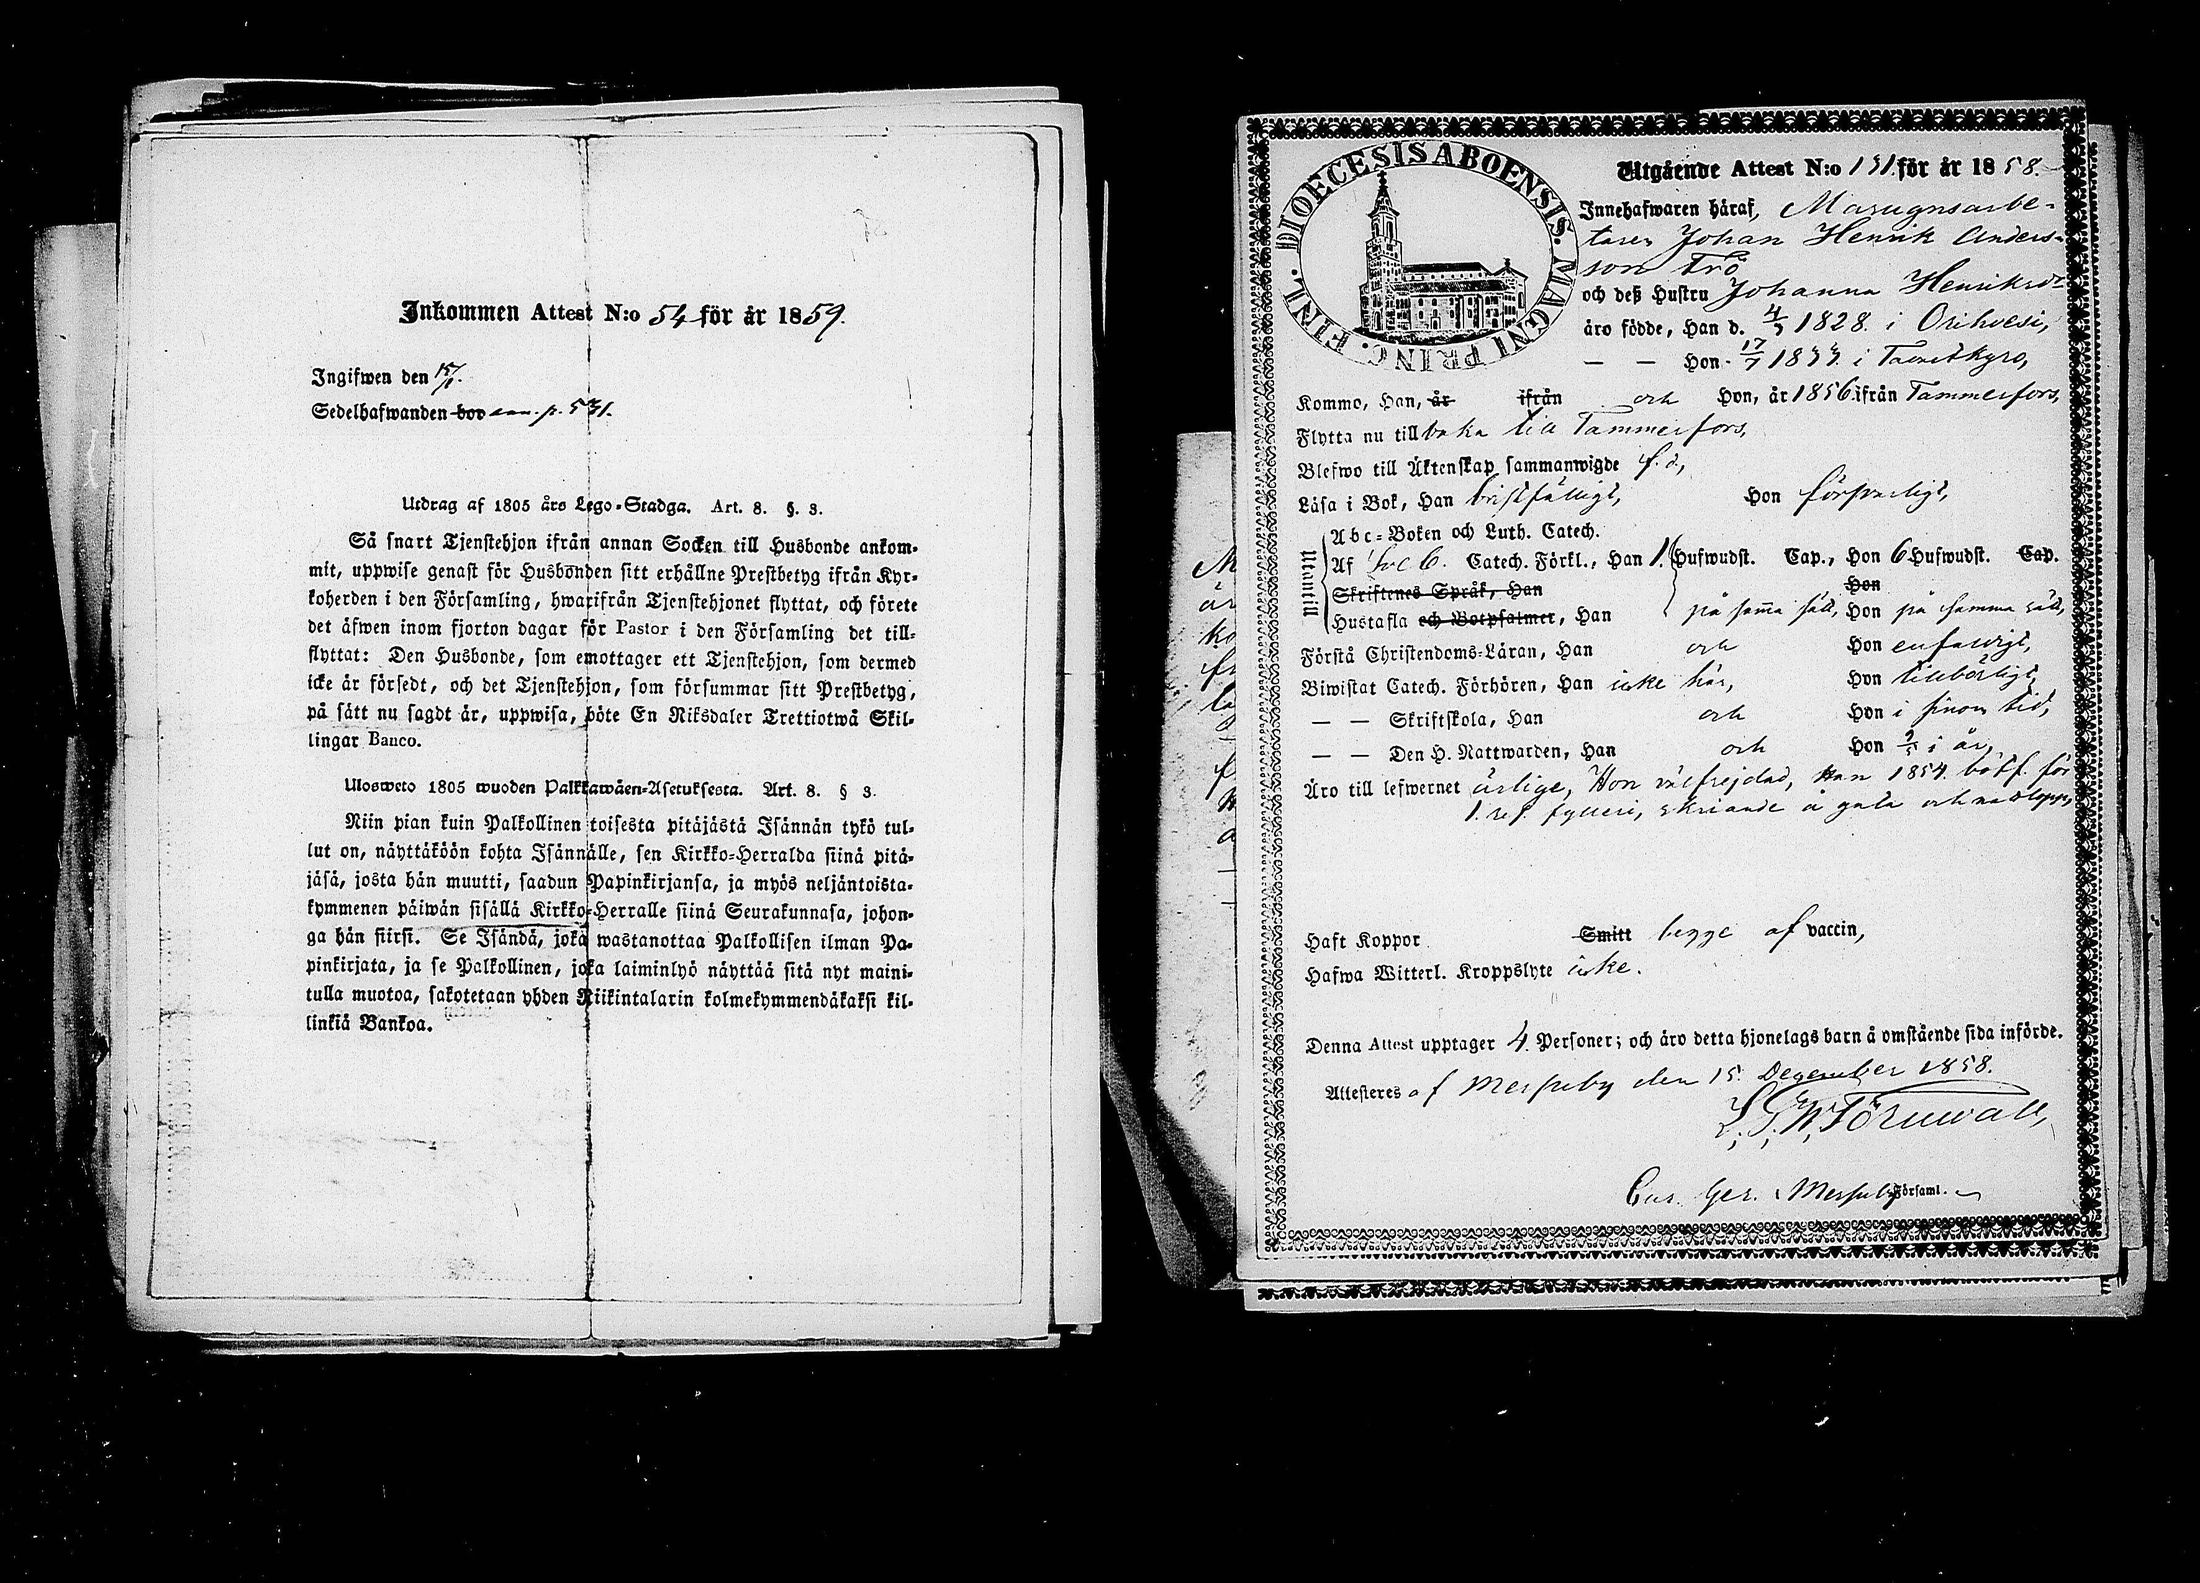 Inkommen Attest N:o 54 för år 1859.
Ingifwen den 15/1.
Sedelhafwanden bor ann. p. 531.
Utdrag af 1805 års Lego-Stadga. Art. 8. §. 3.
Så snart Tjenstehjon ifrån annan Socken till Husbonde ankom-
mit, uppwise genast för Husbonden sitt erhållne Prestbetyg ifrån Kyr-
koherden i den Församling, hwarifrån Tjenstehjonet flyttat, och förete
det äfwen inom fjorton dagar för Pastor i den Församling det till-
flyttat: Den Husbonde, som emottager ett Tjenstehjon, som dermed
icke är försedt, och det Tjenstehjon, som försummar sitt Prestbetyg,
på sätt nu sagdt är, uppwisa, böte En Riksdaler Trettiotwå Skil-
lingar Banco.
Ulosweto 1805 wuoden Palkkawäen-Asetuksesta. Art. 8. § 3.
Niin pian kuin Palkollinen toisesta pitäjästä Isännän tykö tul-
lut on, näyttäköön kohta Isännälle, sen Kirkko-Herralda siinä pitä-
jäsä, josta hän muutti, saadun Papinkirjansa, ja myös neljäntoista-
kymmenen päiwän sisällä Kirkko-Herralle siinä Seurakunnasa, johon-
ga hän siirsi. Se Isändä, joka wastanottaa Palkollisen ilman Pa-
pinkirjata, ja se Palkollinen, joka laiminlyö näyttää sitä nyt maini-
tulla muotoa, sakotetaan yhden Riikintalarin kolmekymmendäkaksi kil-
linkiä Bankoa.
DIOECESIS ABOENSIS. MAGNI PRINC. FINL.
Utgående Attest N:o 131 för år 1858.
Innehafwaren häraf, Masugnsarbe-
taren Johan Henrik Anders-
son Frö
och deß Hustru Johanna Henriksdr
äro födde, Han d. 4/3 1828. i Orihvesi,
— — Hon 17/7 1833. i Tavastkyro,
Komme, Han, år ifrån och Hon, år 1856. ifrån Tammerfors,
Flytta nu tillbaka till Tammerfors,
Blefwo till Äktenskap sammanwigde f. d.,
Läsa i Bok, Han bristfälligt, Hon försvarligt,
Utantill
Abc-Boken och Luth. Catech.
Af Svebb. Catech. Förkl., Han 1. Hufwudst. Cap., Hon 6 Hufwudst. Cap.
Skriftenes Språk, Han Hon
Hustafla och Botpsalmer, Han på samma sätt, Hon på samma sätt,
Förstå Christendoms-Läran, Han och Hon enfaldigt,
Biwistat Catech. Förhören, Han icke här, Hon tillbörligt,
— — Skriftskola, Han och Hon i sinom tid,
— — Den H. Nattwarden, Han och Hon 9/5 i år,
Äro till lefwernet ärlige, Hon välfrejdad, Han 1854. bötf. för
1. res. fylleri, skriande å gata och
Haft Koppor Smitt begge af vaccin,
Hafwa Witterl. Kroppslyte icke.
Denna Attest upptager 4. Personer; och äro detta hjonelags barn å omstående sida införde.
Attesteras af Messuby den 15. December 1858.
Törnwall,
Messuby Församl.